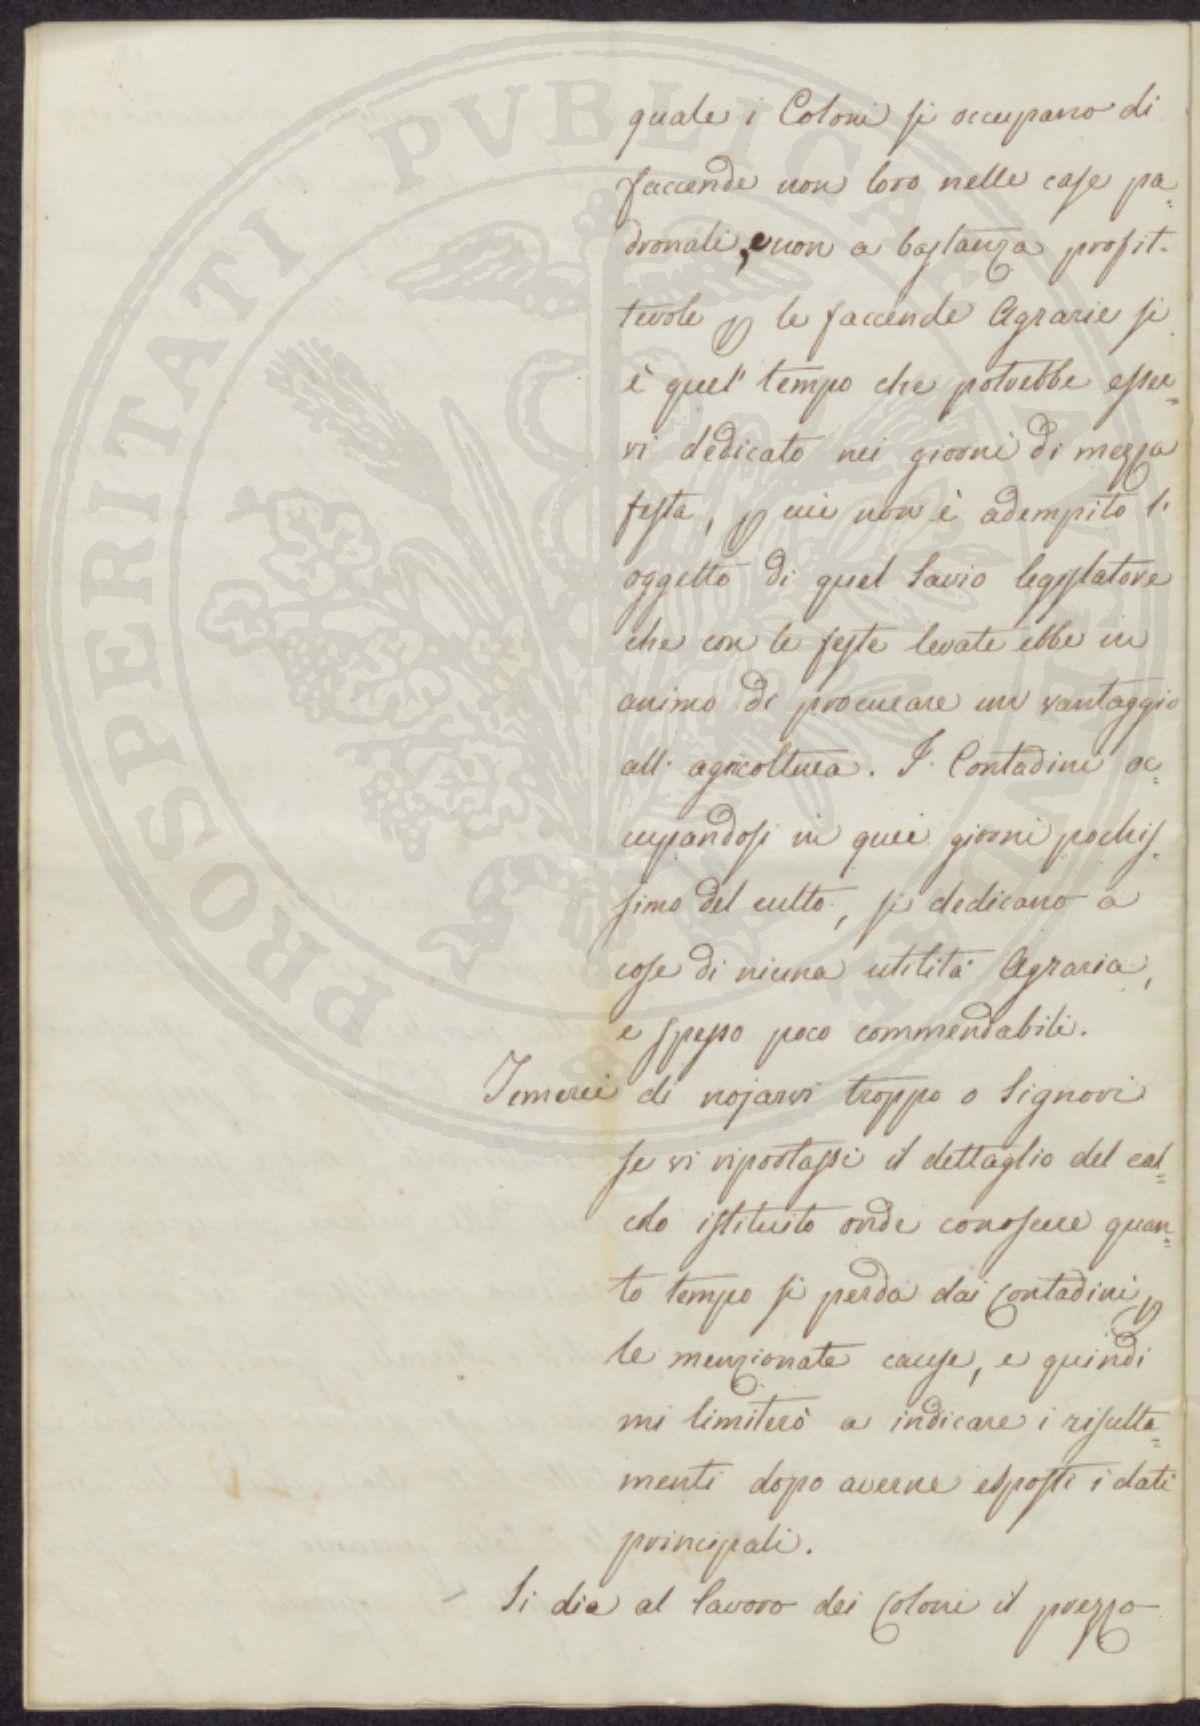 quale i Coloni si occupano di
faccende non loro nelle case pa=
dronali, e non a bastanza profit=
tevole p le faccende Agrarie si
è quel tempo che potrebbe esser=
vi dedicato nei giorni di mezza
festa, p cui non è adempito l'
oggetto di quel Savio legislatore
che con le feste levate ebbe in
animo di procurare un vantaggio
all' agricoltura. I Contadini oc=
cupandosi in quei giorni pochis=
simo del culto, si dedicano a
cose di niuna utilità Agraria,
e spesso poco commendabili.
Temerei di nojarvi troppo o Signori
se vi riportassi il dettaglio del cal=
colo istituito onde conoscere quan=
to tempo si perda dai Contadini p
le menzionate cause, e quindi
mi limiterò a indicare i risulta=
menti dopo averne esposti i dati
principali.
Si dia al lavoro dei Coloni il prezzo
PROSPERITATI PVBLICAE AVGENDAE